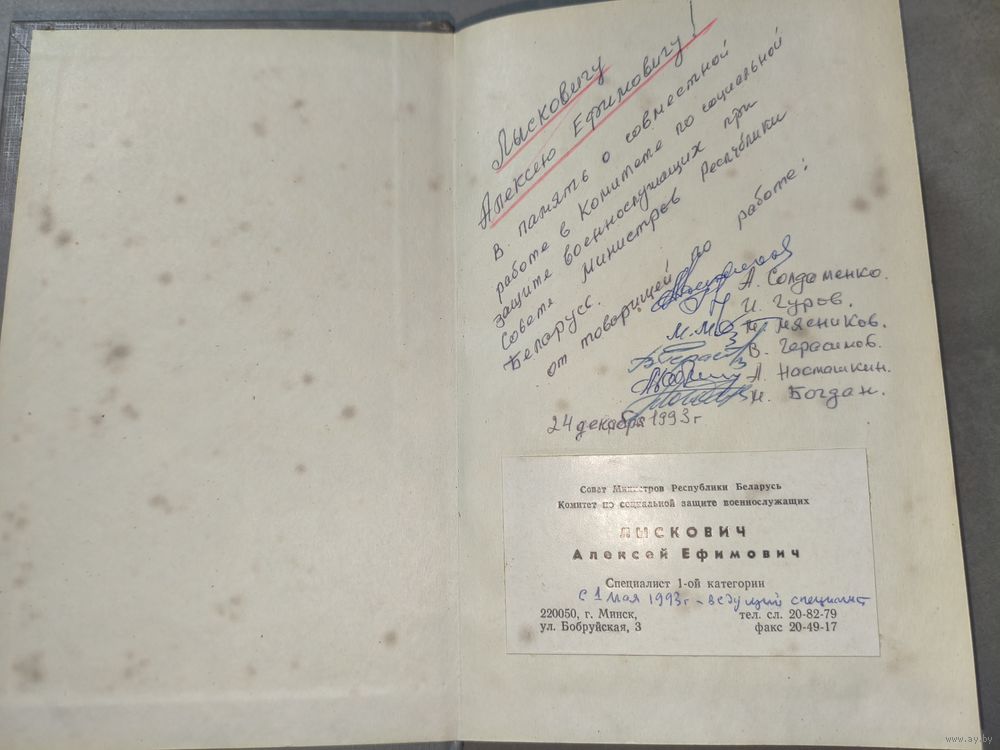 Лысковичу
Алексею Ефимовичу!
В память о совместной
работе в Комитете по социальной
защите военнослужащих при
Совете Министров Республики
Беларусь.
от товарищей по работе:
А. Солдаменко.
И. Гуров.
М. М
П. Мясников.
В. Герасимов.
А. Насташкин.
Н. Богдан.
24 декабря 1993 г
Совет Министров Республики Беларусь
Комитет по социальной защите военнослужащих
ЛЫСКОВИЧ
Алексей Ефимович
Специалист 1-ой категории
с 1 мая 1993 г - ведущий специалист
220050, г. Минск,
ул. Бобруйская, 3
тел. сл. 20-82-79
факс 20-49-17
www.ay.by